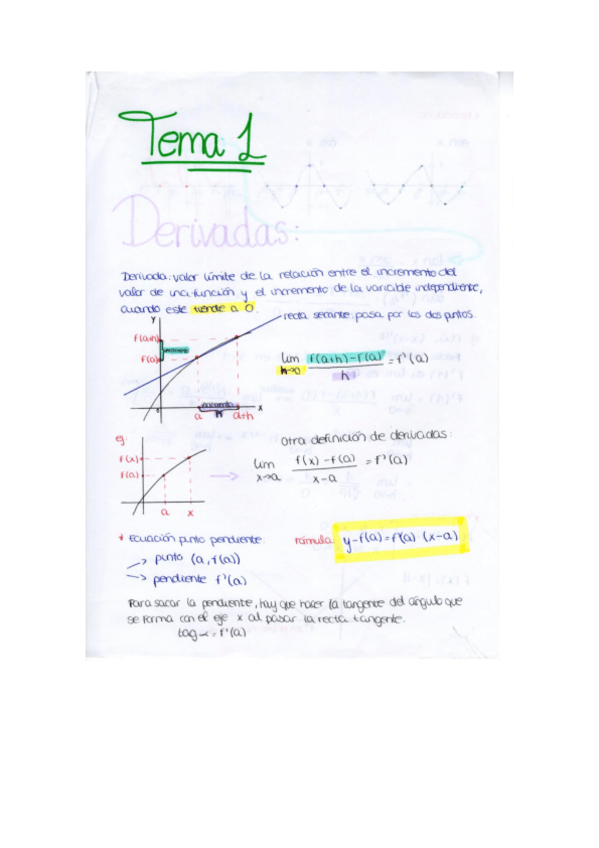 Tema 1
Derivadas:
Derivada: valor límite de la relación entre el incremento del
valor de una función y el incremento de la variable independiente,
cuando este tiende a 0.
recta secante: pasa por los dos puntos.
y
f(a+h)
f(a)
incremento
lim f(a+h)-f(a) = f'(a)
h→0 h
0
incremento
h
x
a a+h
eg:
Otra definición de derivadas:
f(x)
f(a)
lim f(x)-f(a) = f'(a)
x→a x-a
a x
* Ecuación punto pendiente:
Fórmula: y-f(a)=f'(a) (x-a)
→ punto (a, f(a))
→ pendiente f'(a)
Para sacar la pendiente, hay que hacer la tangente del ángulo que
se forma con el eje x al pasar la recta tangente.
tag α = f'(a)